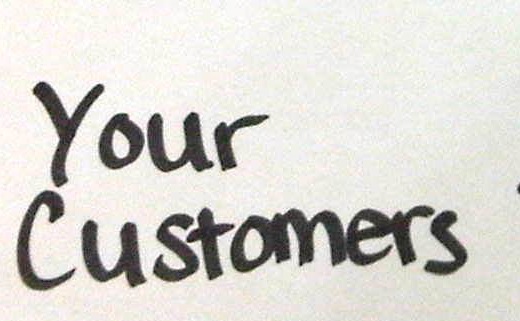 Your
Customers